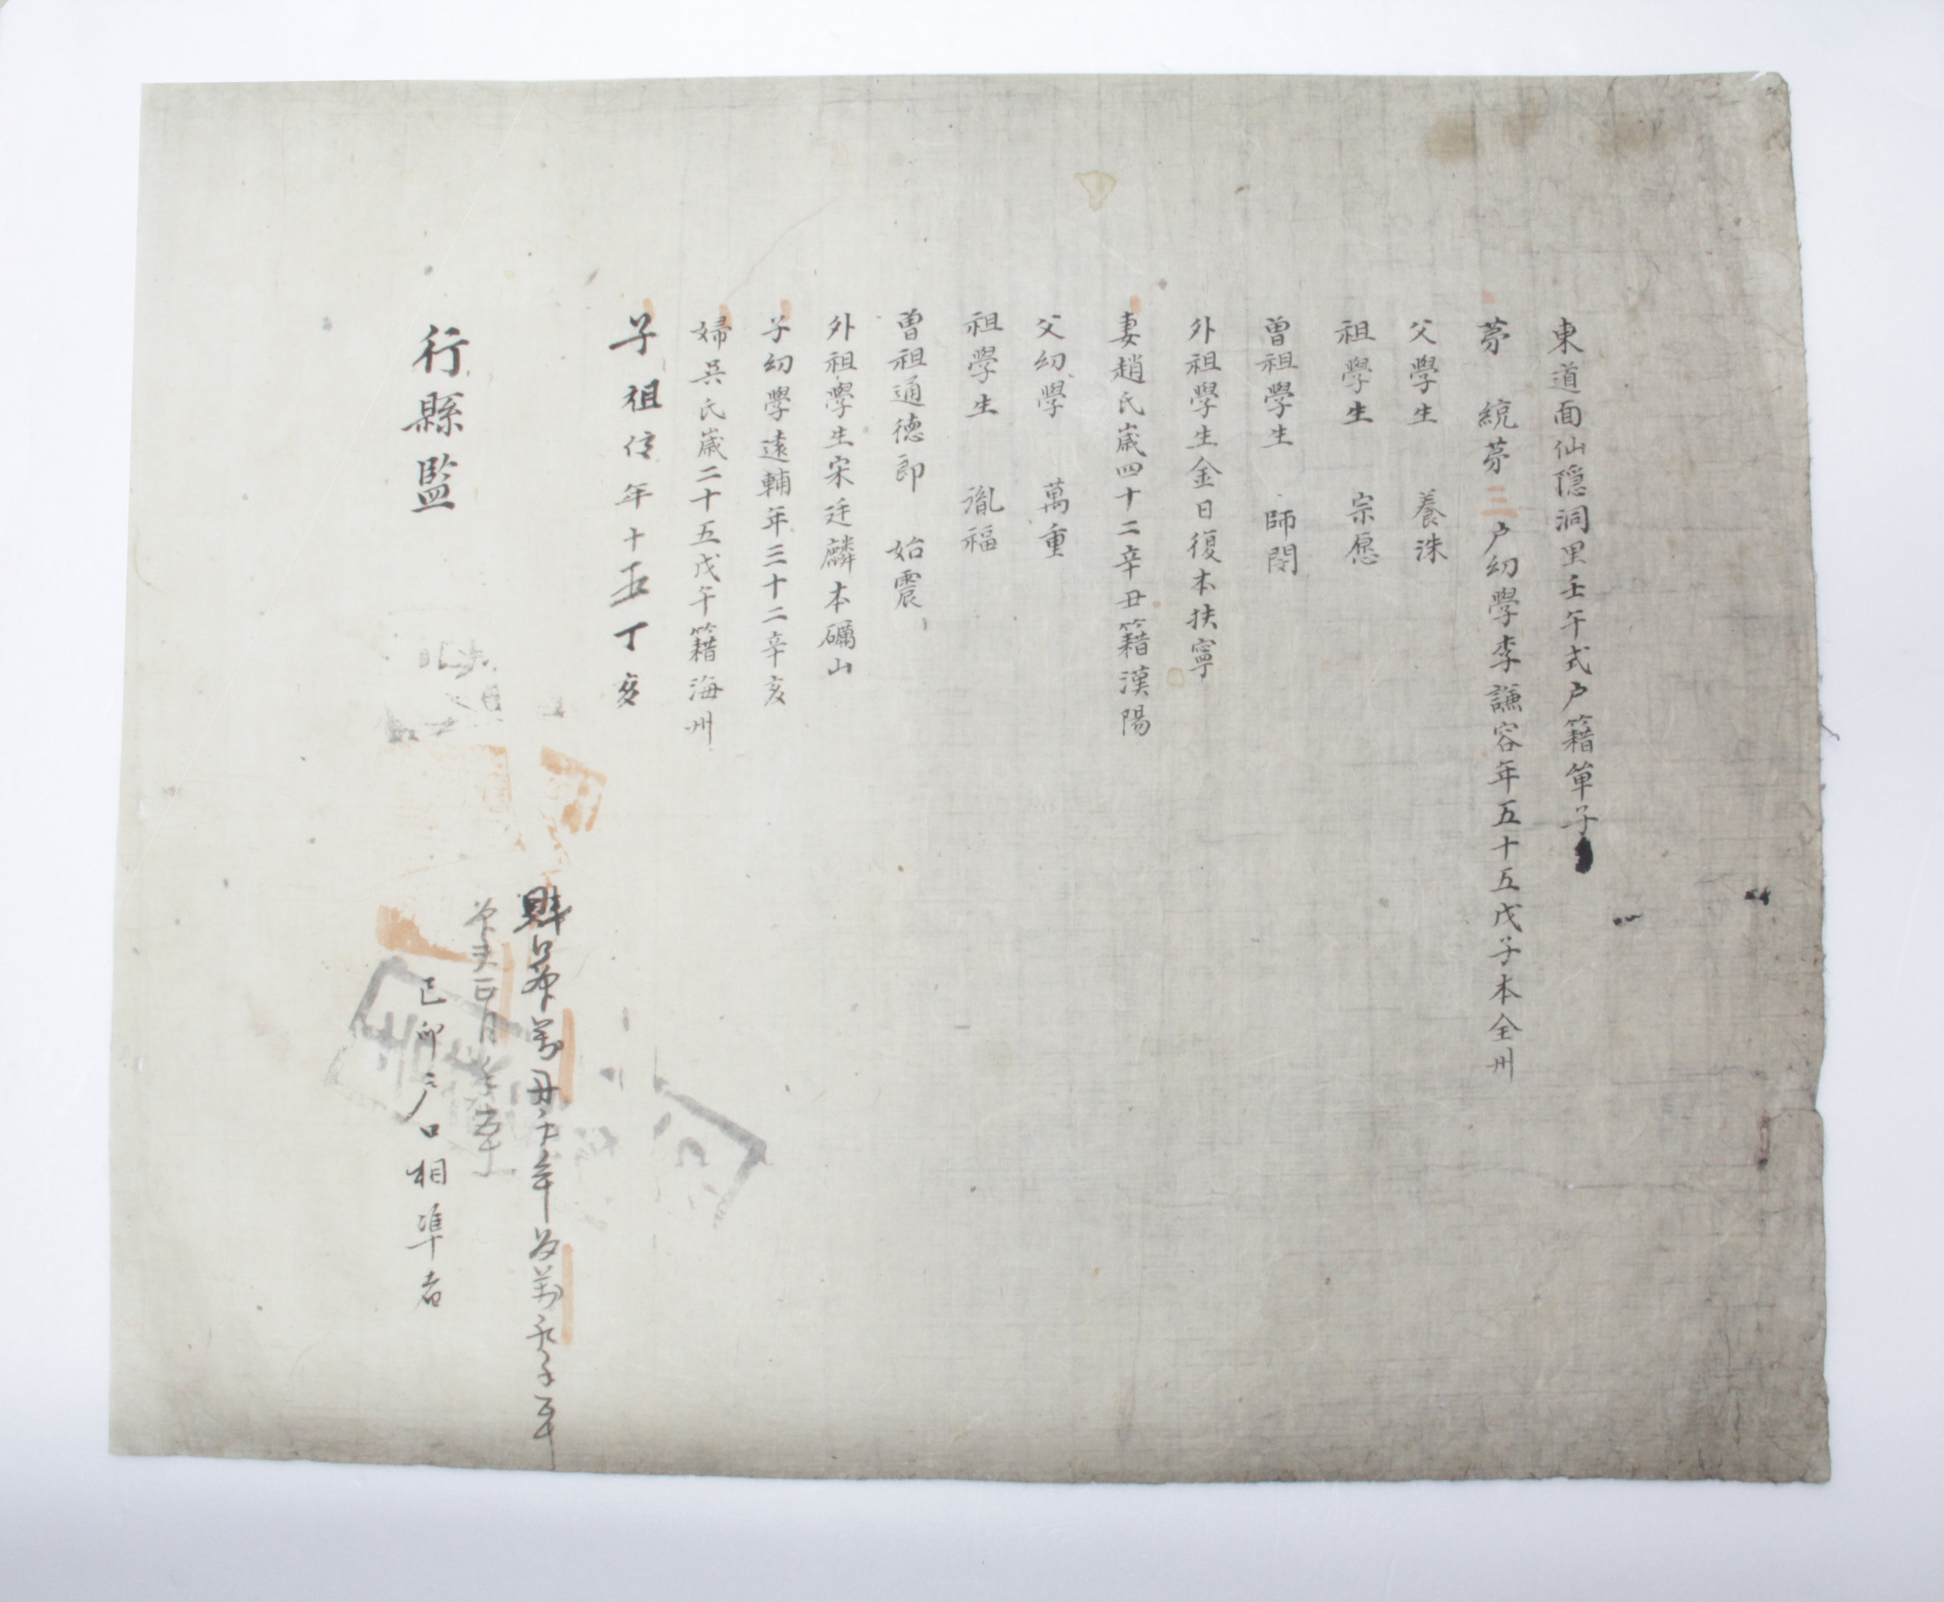 東道面仙隱洞里壬午式户籍單子
苐 統苐三户幼學李謙容年五十五戊子本全州
父學生 養洙
祖學生 宗愿
曾祖學生 師閔
外祖學生金日復本扶寧
妻趙氏歲四十二辛丑籍漢陽
父幼學 萬重
祖學生 胤福
曾祖通德郎 始震
外祖學生宋廷麟本礪山
子幼學遠輔年三十二辛亥
婦吳氏歲二十五戊午籍海州
子祖信年十五丁亥
行縣監
己卯户口相凖者